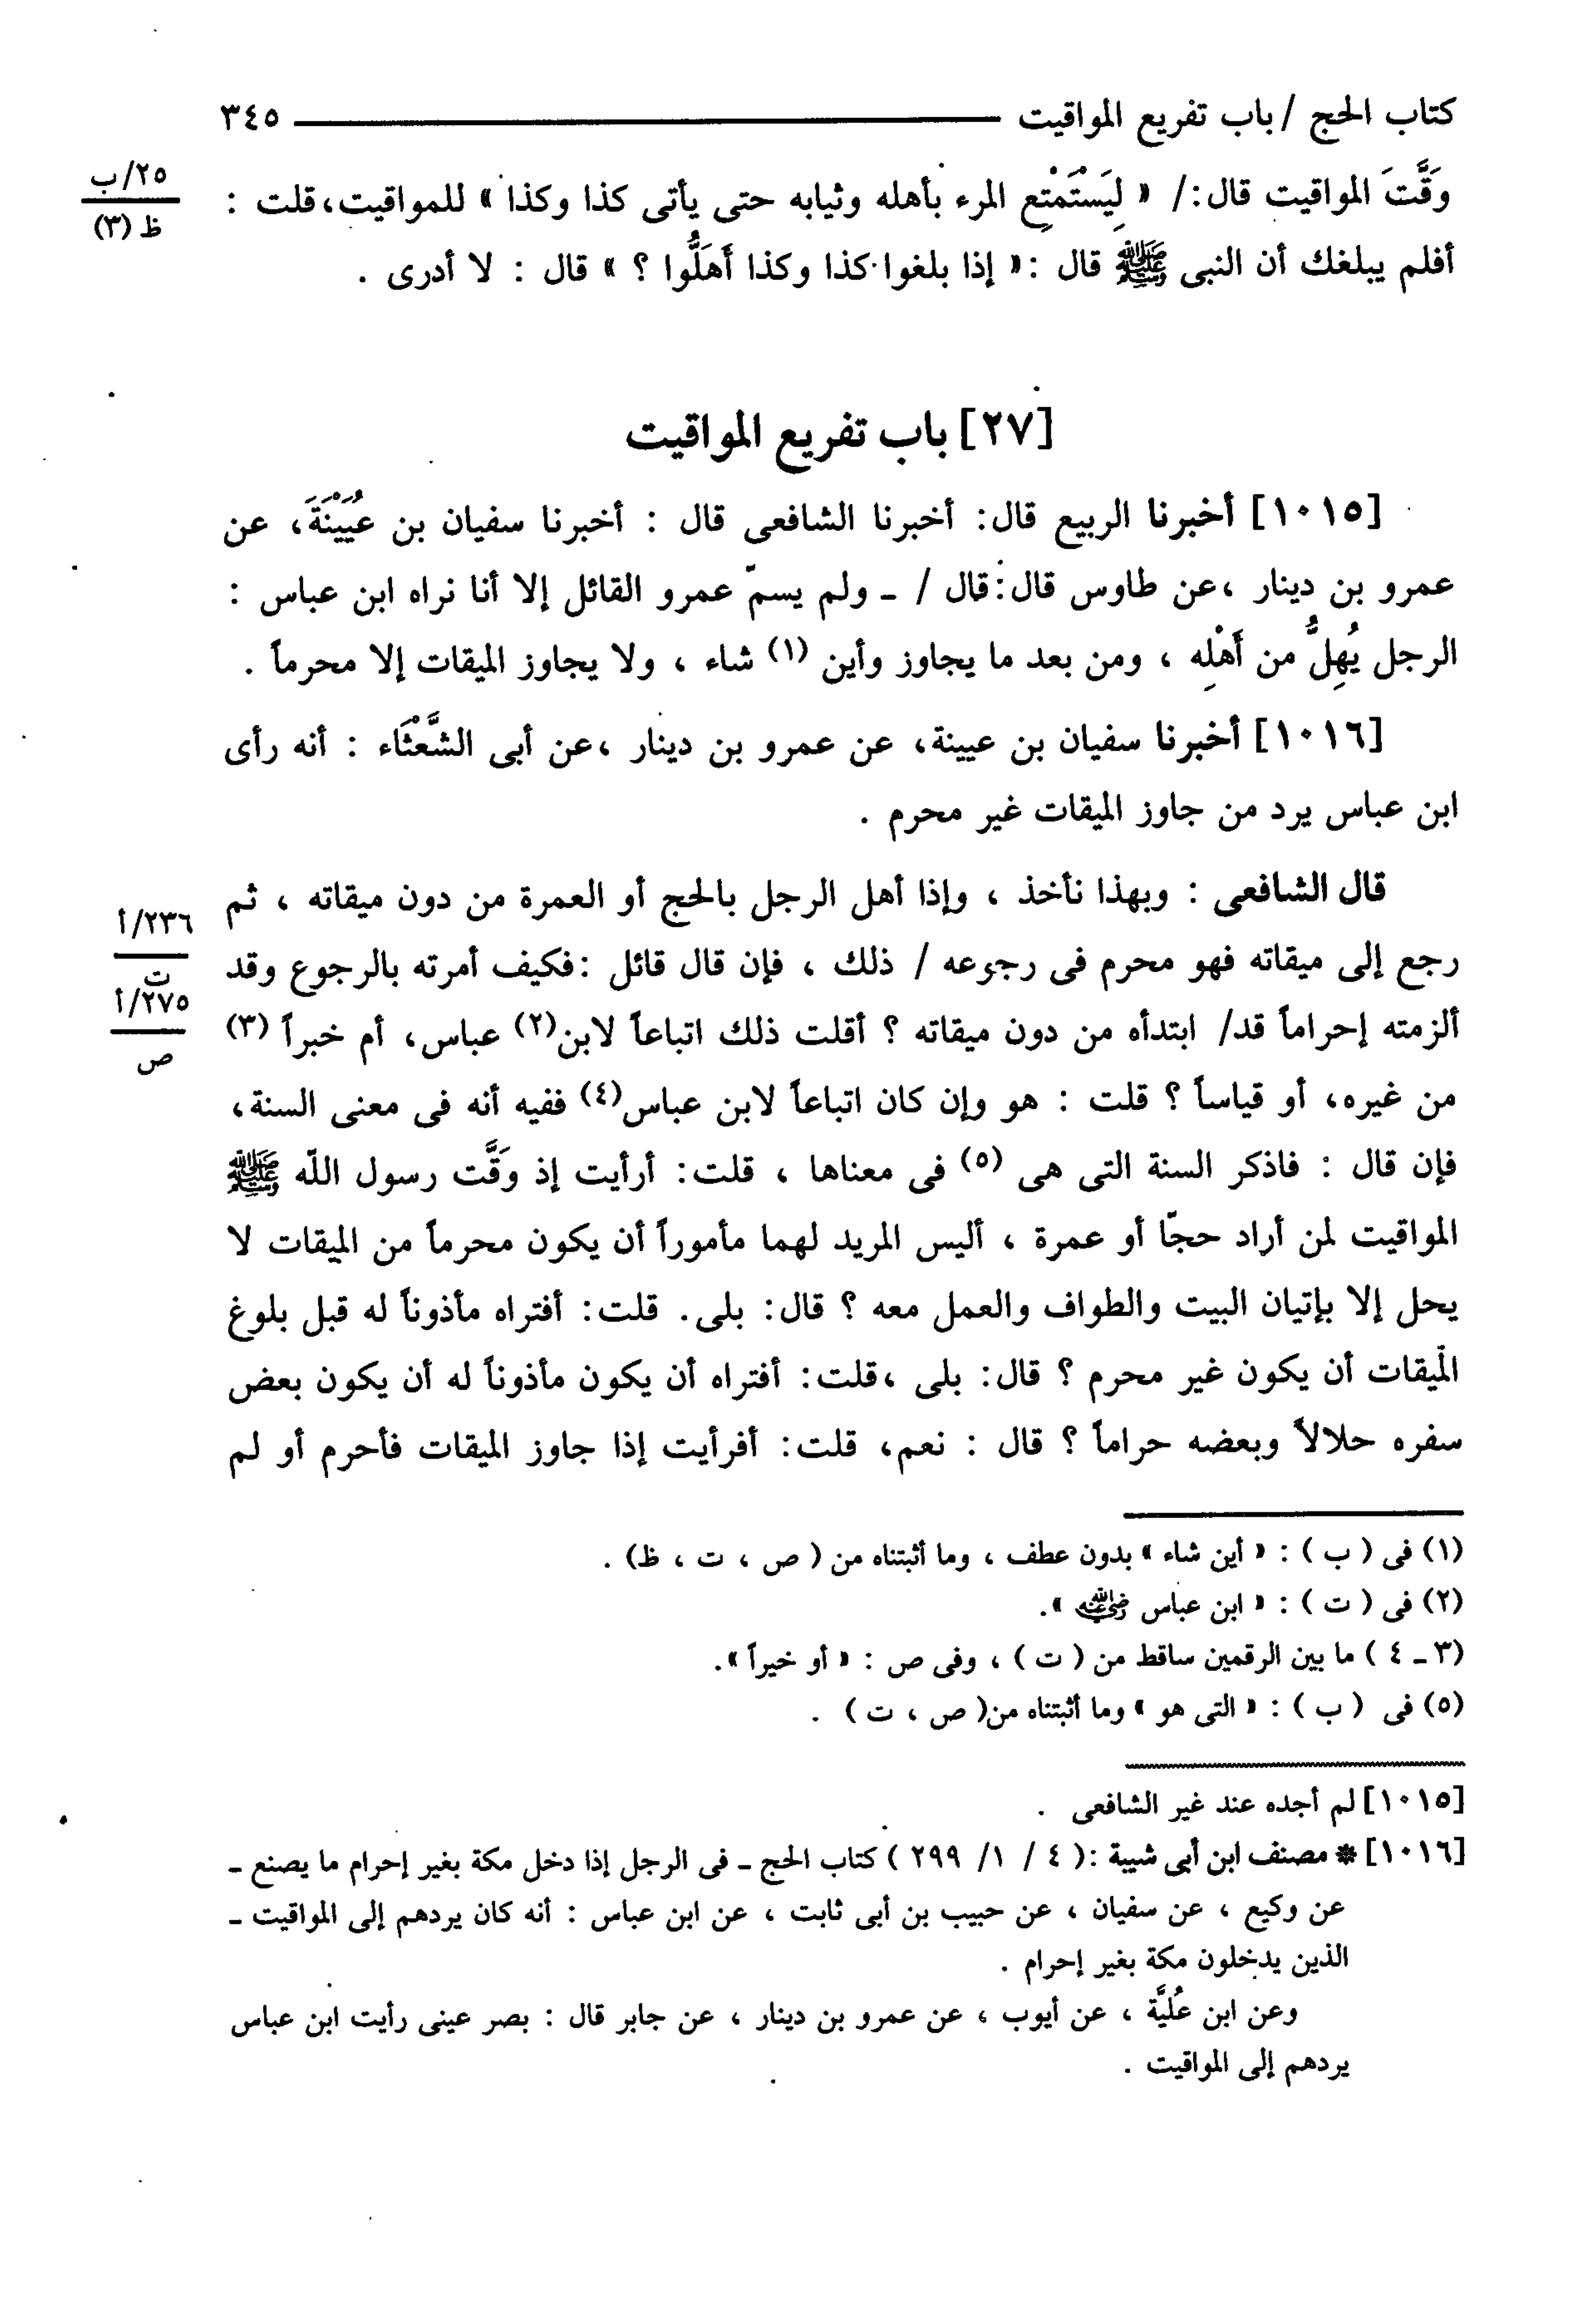 كتاب الحج / باب تفريع المواقيت ٣٤٥
وَقَّتَ المواقيت قال :/ « لِيَسْتَمْتِع المرء بأهله وثيابه حتى يأتى كذا وكذا » للمواقيت، قلت :
٢٥/ب
ظ (٣)
أفلم يبلغك أن النبى ﷺ قال : « إذا بلغوا كذا وكذا أَهَلُّوا ؟ » قال : لا أدرى .
[٢٧] باب تفريع المواقيت
[١٠١٥] أخبرنا الربيع قال: أخبرنا الشافعى قال : أخبرنا سفيان بن عُيَيْنَةَ، عن
عمرو بن دينار ،عن طاوس قال: قال / ـ ولم يسمّ عمرو القائل إلا أنا نراه ابن عباس :
الرجل يُهِلُّ من أَهْلِه ، ومن بعد ما يجاوز وأين (١) شاء ، ولا يجاوز الميقات إلا محرماً .
[١٠١٦] أخبرنا سفيان بن عيينة، عن عمرو بن دينار ،عن أبى الشَّعْثَاء : أنه رأى
ابن عباس يرد من جاوز الميقات غير محرم .
قال الشافعى : وبهذا نأخذ ، وإذا أهل الرجل بالحج أو العمرة من دون ميقاته ، ثم
٢٣٦/أ
ت
رجع إلى ميقاته فهو محرم فى رجوعه / ذلك ، فإن قال قائل :فكيف أمرته بالرجوع وقد
٢٧٥/أ
ص
ألزمته إحراماً قد/ ابتدأه من دون ميقاته ؟ أقلت ذلك اتباعاً لابن(٢) عباس، أم خبراً (٣)
من غيره، أو قياساً ؟ قلت : هو وإن كان اتباعاً لابن عباس(٤) ففيه أنه فى معنى السنة،
فإن قال : فاذكر السنة التى هى (٥) فى معناها ، قلت: أرأيت إذ وَقَّت رسول الله ﷺ
المواقيت لمن أراد حجّا أو عمرة ، أليس المريد لهما مأموراً أن يكون محرماً من الميقات لا
يحل إلا بإتيان البيت والطواف والعمل معه ؟ قال: بلى. قلت: أفتراه مأذوناً له قبل بلوغ
الميقات أن يكون غير محرم ؟ قال: بلى ،قلت: أفتراه أن يكون مأذوناً له أن يكون بعض
سفره حلالاً وبعضه حراماً ؟ قال : نعم، قلت: أفرأيت إذا جاوز الميقات فأحرم أو لم
(١) فى ( ب ) : « أين شاء » بدون عطف ، وما أثبتناه من ( ص ، ت ، ظ) .
(٢) فى ( ت ) : « ابن عباس رضي الله عنه ».
(٣ ـ ٤ ) ما بين الرقمين ساقط من ( ت ) ، وفى ص : « أو خيراً ».
(٥) فى ( ب ) : « التى هو » وما أثبتناه من( ص ، ت ) .
[١٠١٥] لم أجده عند غير الشافعى .
[١٠١٦] * مصنف ابن أبى شيبة :( ٤ / ١/ ٢٩٩ ) كتاب الحج ـ فى الرجل إذا دخل مكة بغير إحرام ما يصنع ـ
عن وكيع ، عن سفيان ، عن حبيب بن أبى ثابت ، عن ابن عباس : أنه كان يردهم إلى المواقيت ـ
الذين يدخلون مكة بغير إحرام .
وعن ابن عُليَّة ، عن أيوب ، عن عمرو بن دينار ، عن جابر قال : بصر عينى رأيت ابن عباس
يردهم إلى المواقيت .